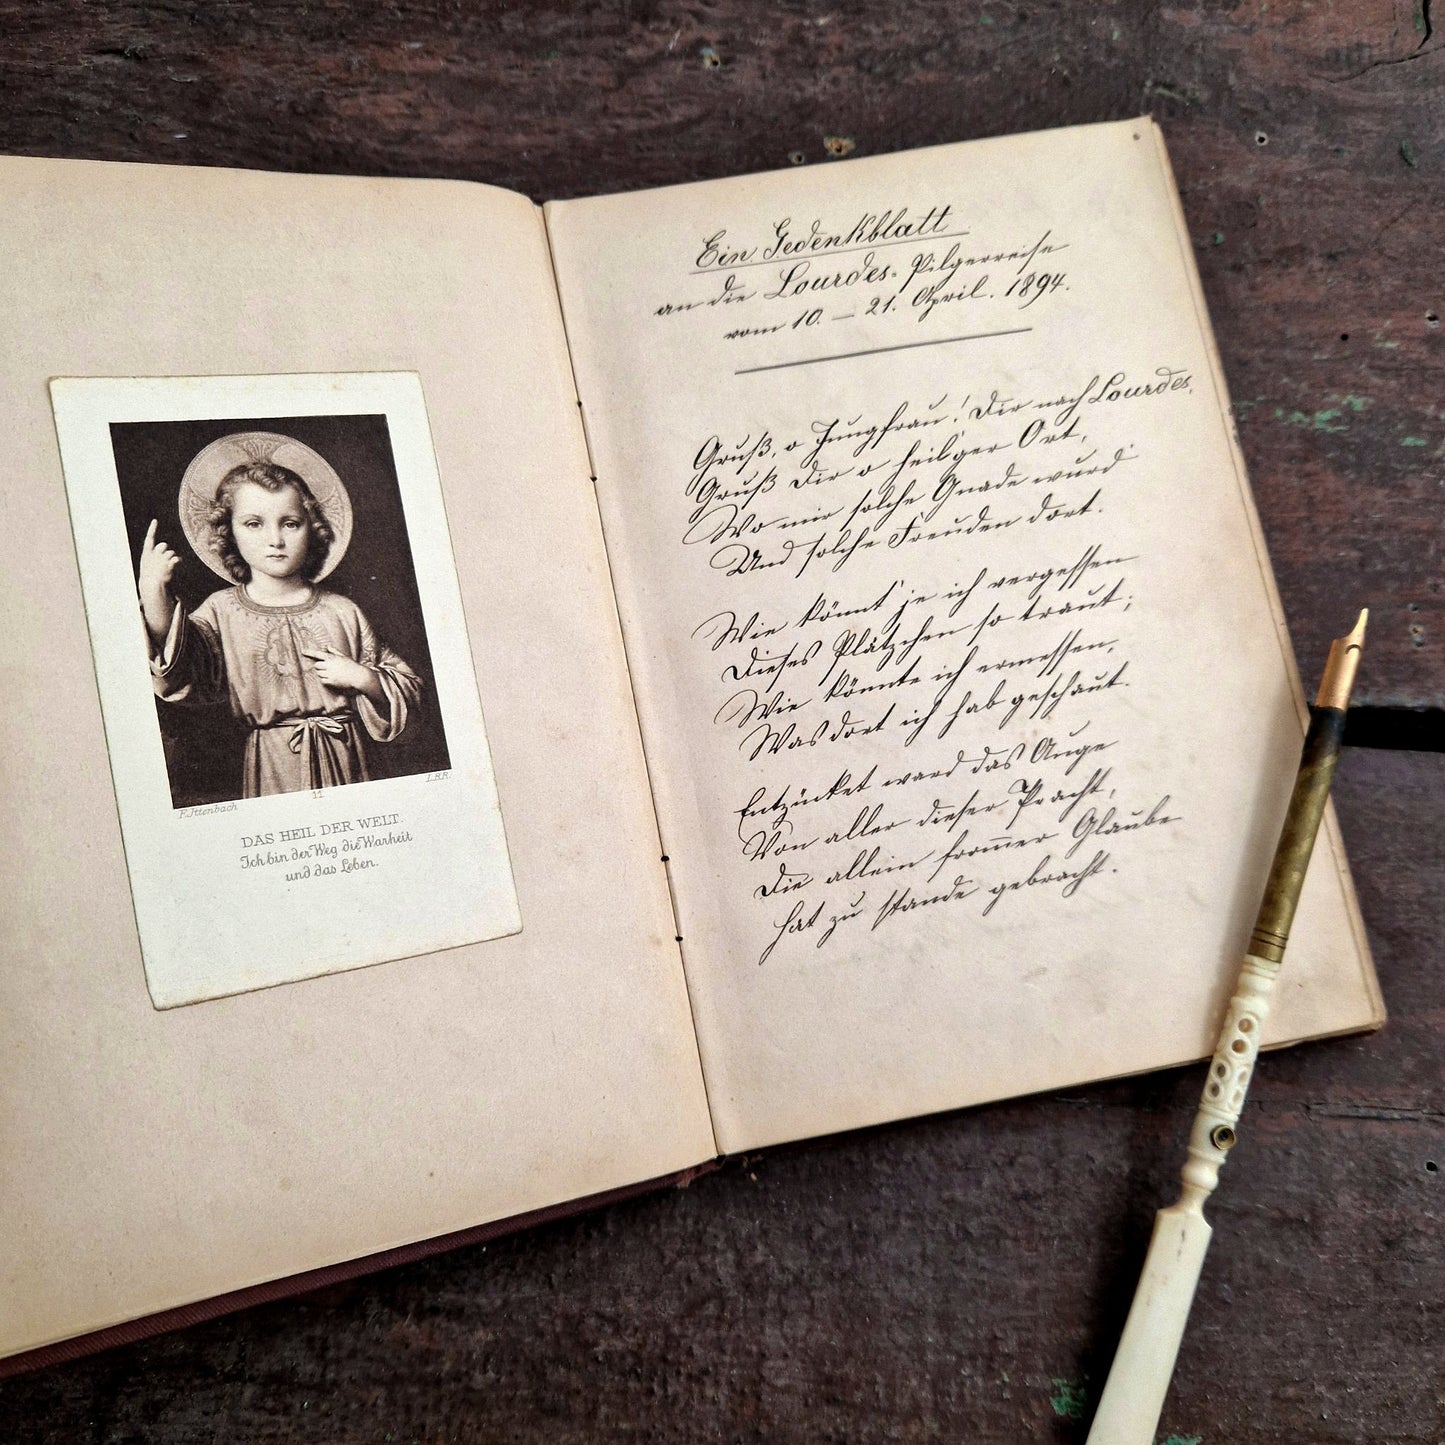 F. Ittenbach
11
I.R.R.
DAS HEIL DER WELT.
Ich bin der Weg die Warheit
und das Leben.
Ein Gedenkblatt
an die Lourdes-Pilgerreise
vom 10. – 21. April. 1894.
Gruß, o Jungfrau! Dir nach Lourdes,
Gruß Dir o heil'ger Ort,
Wo mir solche Gnade wurd'
Und solche Freuden dort.
Wie könnt' je ich vergessen
Dieses Plätzchen so traut;
Wie könnte ich ermessen,
Was dort ich hab geschaut.
Entzücket ward das Auge
Von aller dieser Pracht,
Die allein from̅er Glaube
hat zu stande gebracht.